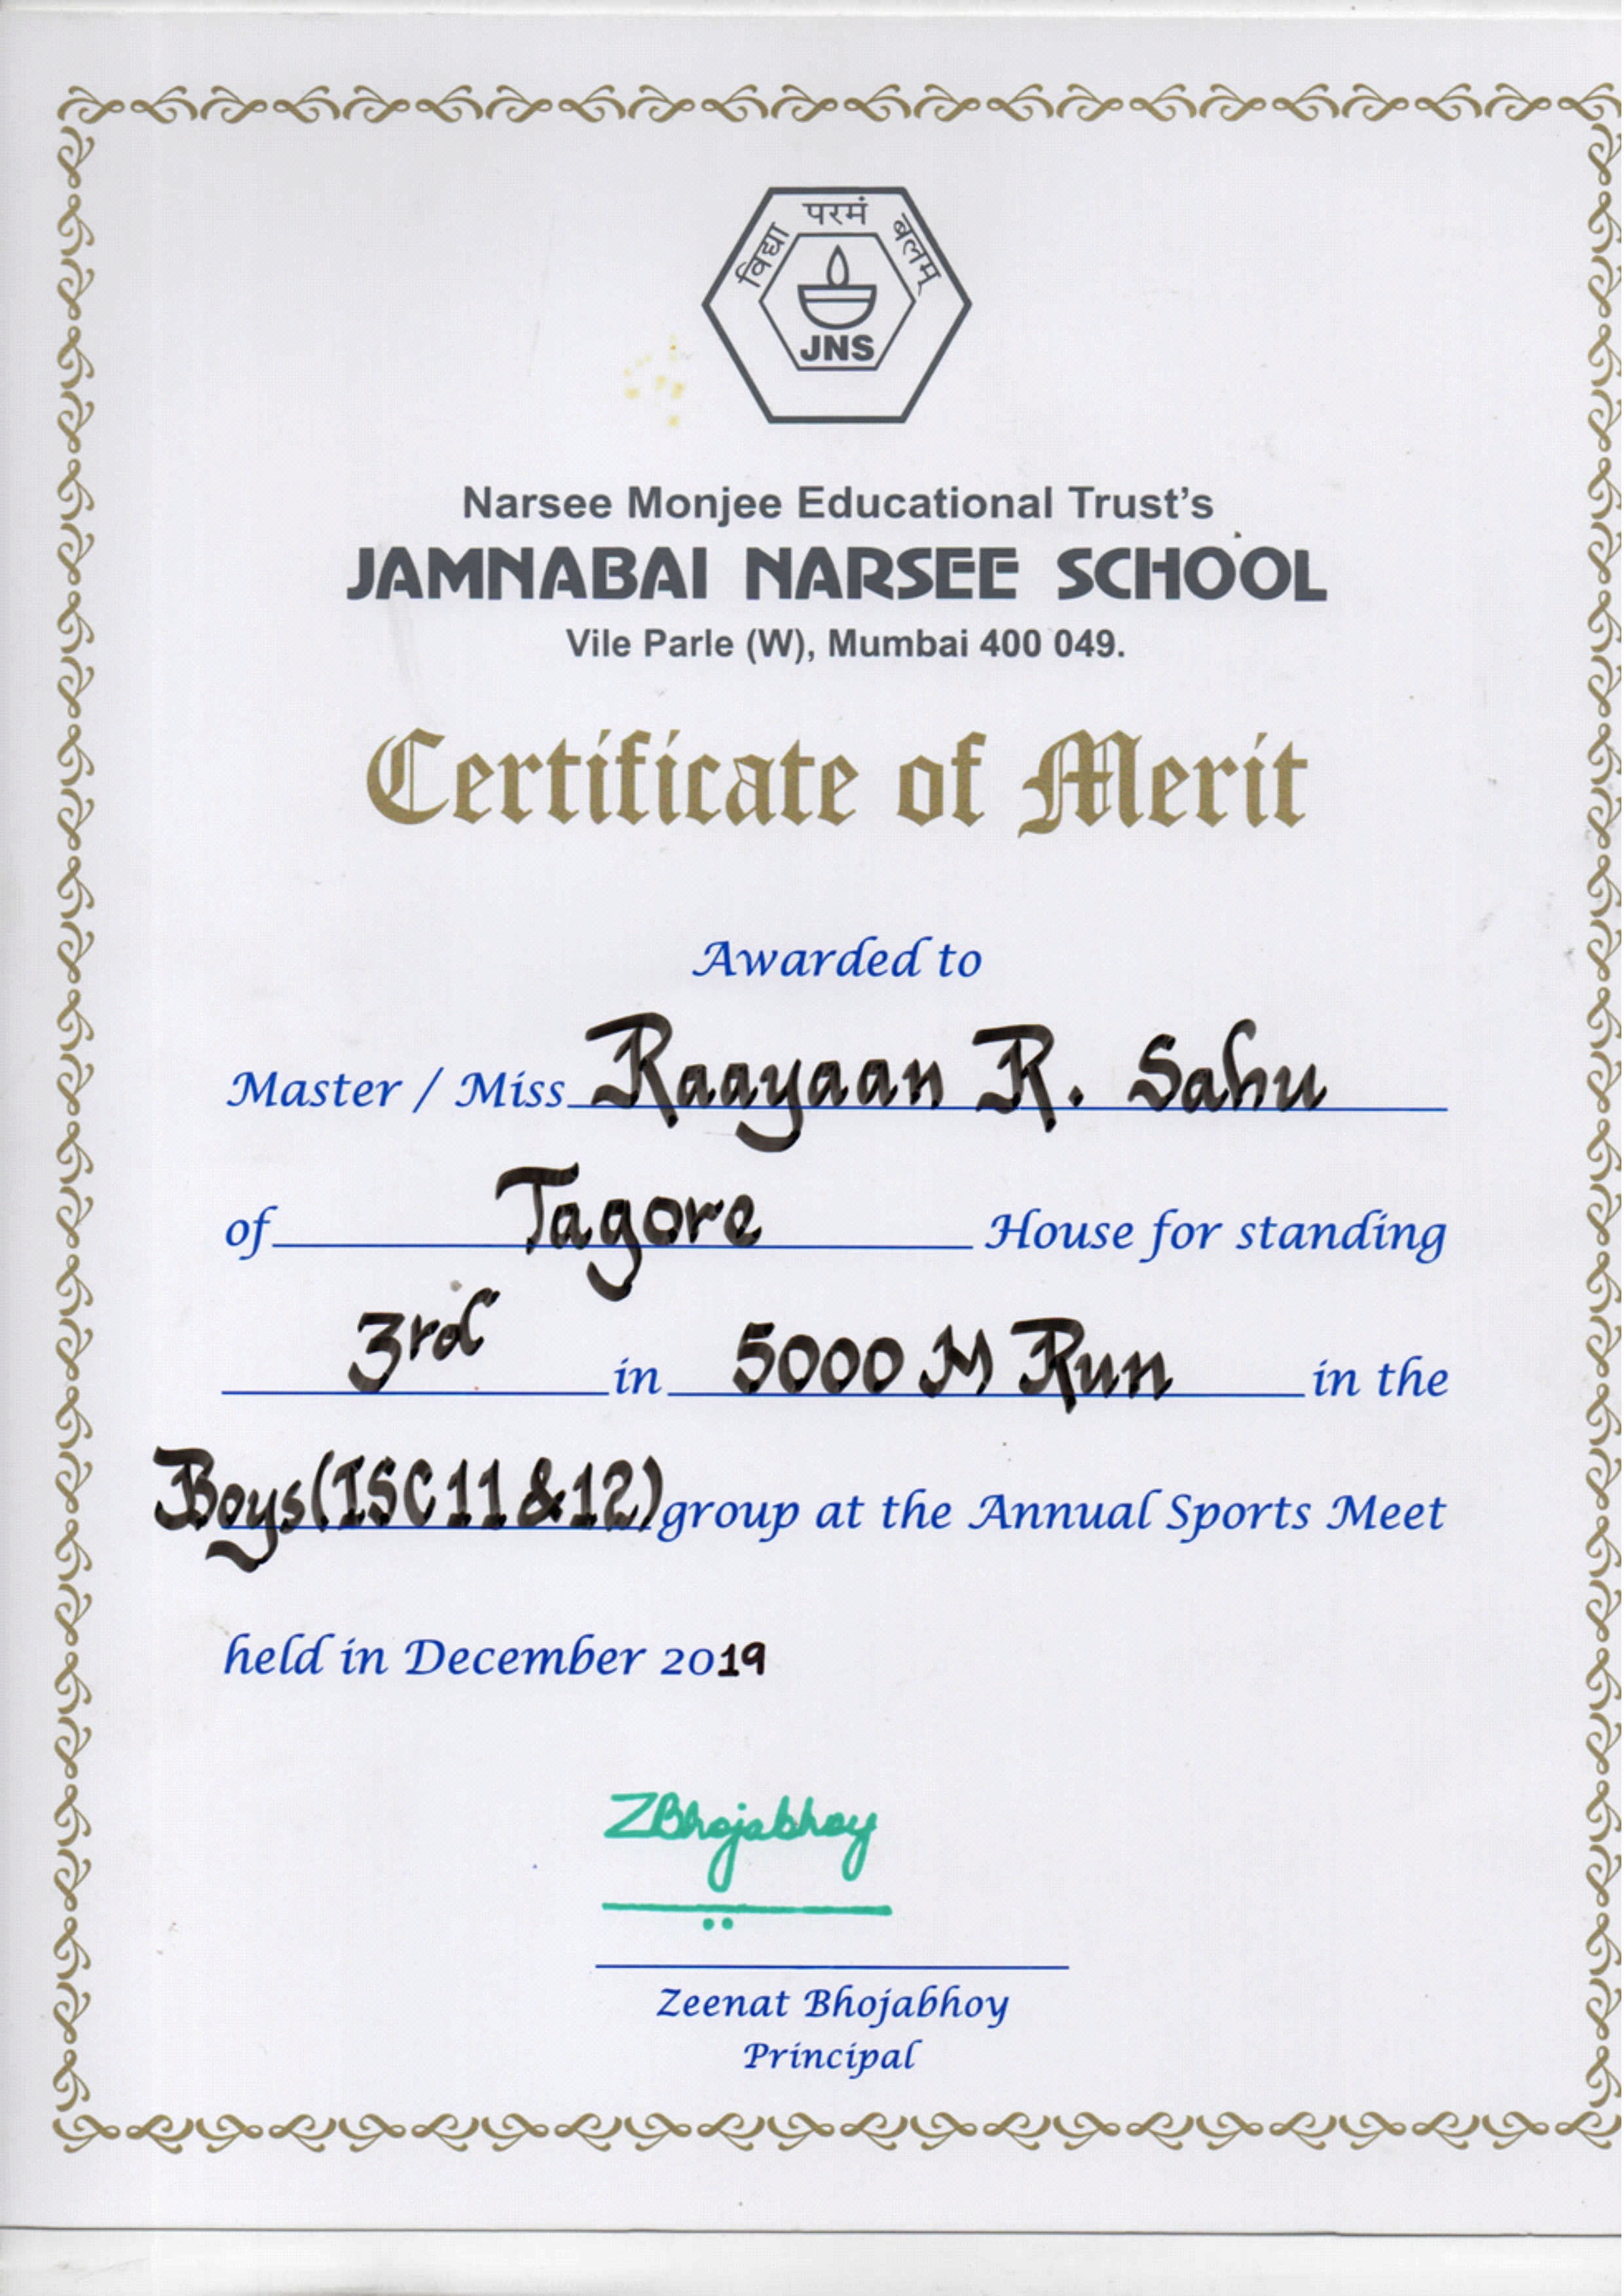 विद्या परमं बलम्
JNS
Narsee Monjee Educational Trust's
JAMNABAI NARSEE SCHOOL
Vile Parle (W), Mumbai 400 049.
Certificate of Merit
Awarded to
Master / Miss Raayaan R. Sahu
of Tagore House for standing
3rd in 5000 M Run in the
Boys (ISC 11 & 12) group at the Annual Sports Meet
held in December 2019
ZBhojabhoy
Zeenat Bhojabhoy
Principal